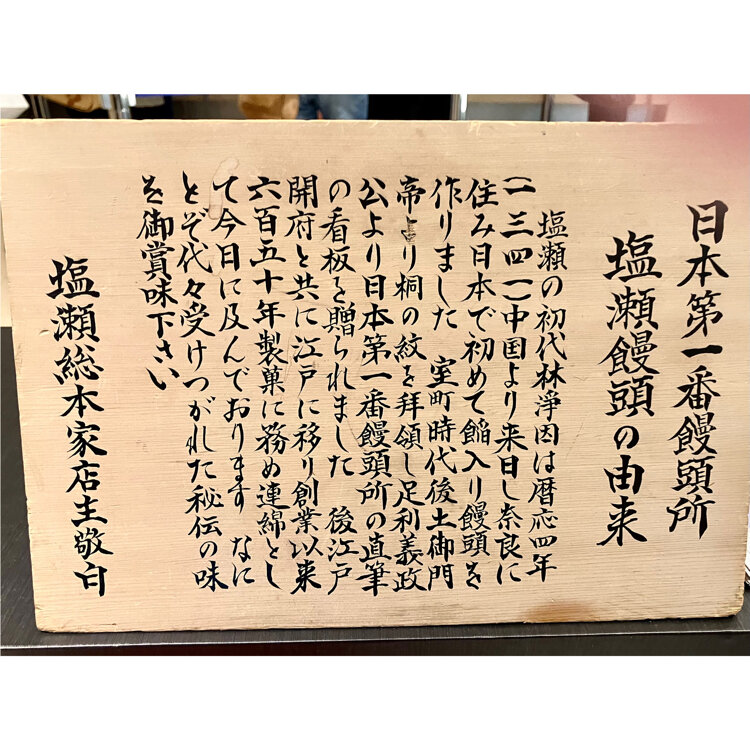 日本第一番饅頭所
塩瀬饅頭の由来
塩瀬の初代林淨因は暦応四年
(一三四一)中国より来日し奈良に
住み日本で初めて餡入り饅頭を
作りました 室町時代後土御門
帝より桐の紋を拝領し足利義政
公より日本第一番饅頭所の直筆
の看板を贈られました 後江戸
開府と共に江戸に移り創業以来
六百五十年製菓に務め連綿とし
て今日に及んでおります なに
とぞ代々受けつがれた秘伝の味
を御賞味下さい
塩瀬総本家店主敬白